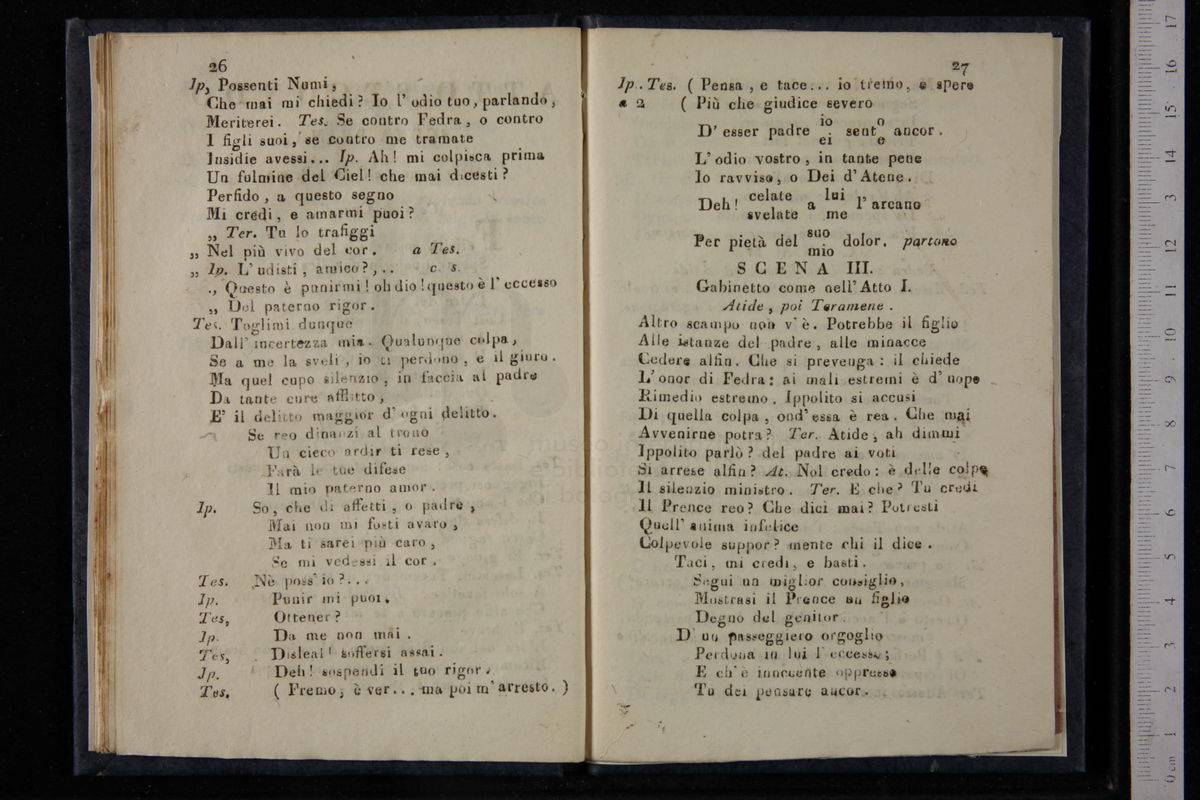 26
Ip, Possenti Numi,
Che mai mi chiedi? Io l'odio tuo, parlando,
Meriterei. Tes. Se contro Fedra, o contro
I figli suoi, se contro me tramate
Insidie avessi... Ip. Ah! mi colpisca prima
Un fulmine del Ciel! che mai dicesti?
Perfido, a questo segno
Mi credi, e amarmi puoi?
„ Ter. Tu lo trafiggi
„ Nel più vivo del cor. a Tes.
„ Ip. L'udisti, amico?,.. c. s.
., Questo è punirmi! oh dio! questo è l'eccesso
„ Del paterno rigor.
Tes. Toglimi dunque
Dall'incertezza mia. Qualunque colpa,
Se a me la sveli, io ti perdono, e il giuro.
Ma quel cupo silenzio, in faccia al padre
Da tante cure afflitto,
E' il delitto maggior d'ogni delitto.
Se reo dinanzi al trono
Un cieco ardir ti rese,
Farà le tue difese
Il mio paterno amor.
Ip. So, che di affetti, o padre,
Mai non mi fosti avaro,
Ma ti sarei più caro,
Se mi vedessi il cor.
Tes. Nè poss'io?...
Ip. Punir mi puoi.
Tes, Ottener?
Ip. Da me non mai.
Tes, Disleal! soffersi assai.
Ip. Deh! sospendi il tuo rigor.
Tes. ( Fremo; è ver... ma poi m'arresto. )
27
Ip. Tes. ( Pensa, e tace... io tremo, e spero
a 2 ( Più che giudice severo
io o
D'esser padre . sent ancor.
ei e
L'odio vostro, in tante pene
Io ravviso, o Dei d'Atene.
celate lui
Deh! a l'arcano
svelate me
suo
Per pietà del dolor. partono
mio
SCENA III.
Gabinetto come nell'Atto I.
Atide, poi Teramene.
Altro scampo non v'è. Potrebbe il figlio
Alle istanze del padre, alle minacce
Cedere alfin. Che si prevenga: il chiede
L'onor di Fedra: ai mali estremi è d'uopo
Rimedio estremo. Ippolito si accusi
Di quella colpa, ond'essa è rea. Che mai
Avvenirne potra? Ter. Atide, ah dimmi
Ippolito parlò? del padre ai voti
Si arrese alfin? At. Nol credo: è delle colpe
Il silenzio ministro. Ter. E che? Tu credi
Il Prence reo? Che dici mai? Potresti
Quell'anima infelice
Colpevole suppor? mente chi il dice.
Taci, mi credi, e basti.
Segui un miglior consiglio,
Mostrasi il Prence un figlio
Degno del genitor.
D'un passeggiero orgoglio
Perdona in lui l'eccesso;
E ch'è innocente oppresso
Tu dei pensare ancor.